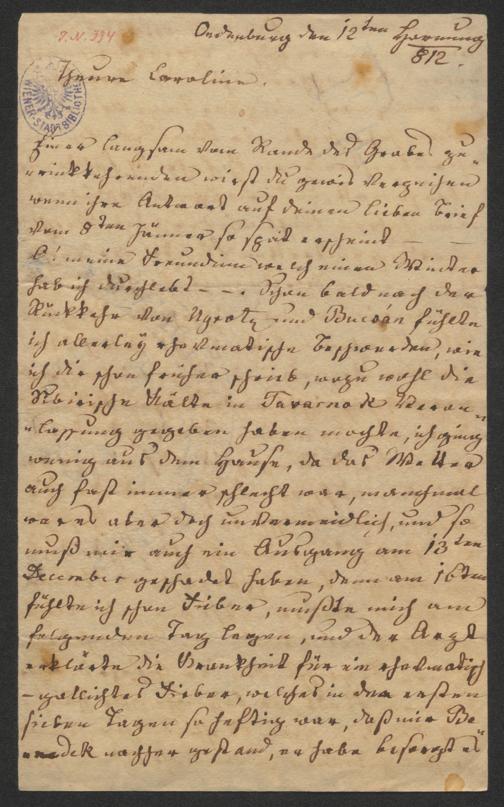 J.N. 394
WIENER STADTBIBLIOTHEK
Oedenburg den 12ten Hornung
812.
Theure Caroline.
Einer langsam vom Rande des Grabes zu-
rükkehrenden wirst du gewis verzeihen
wenn ihre Antwort auf deinen lieben Brief
vom 8ten Jänner so spät erscheint — —
O! meine Freundinn welch einen Winter
hab ich durchlebt — —. Schon bald nach der
Rükkehr von Ugrotz und Bucsan fühlte
ich allerley rhevmatische Beschwerden, wie
ich dir schon früher schrieb, wozu wohl die
Sibirische Kälte in Tavarnok Veran-
lassung gegeben haben mochte, ich ging
wenig aus dem Hause, da das Wetter
auch fast immer schlecht war, manchmal
war es aber doch unvermeidlich, und so
muß mir auch ein Ausgang am 13ten
December geschadet haben, denn am 16ten
fühlte ich schon Fieber, mußte mich am
folgenden Tag legen, und der Arzt
erklärte die Krankheit für ein rhevmatisch
-gallichtes Fieber, welches in den ersten
sieben Tagen so heftig war, daß mir
nachher gestand, er habe besorgt es